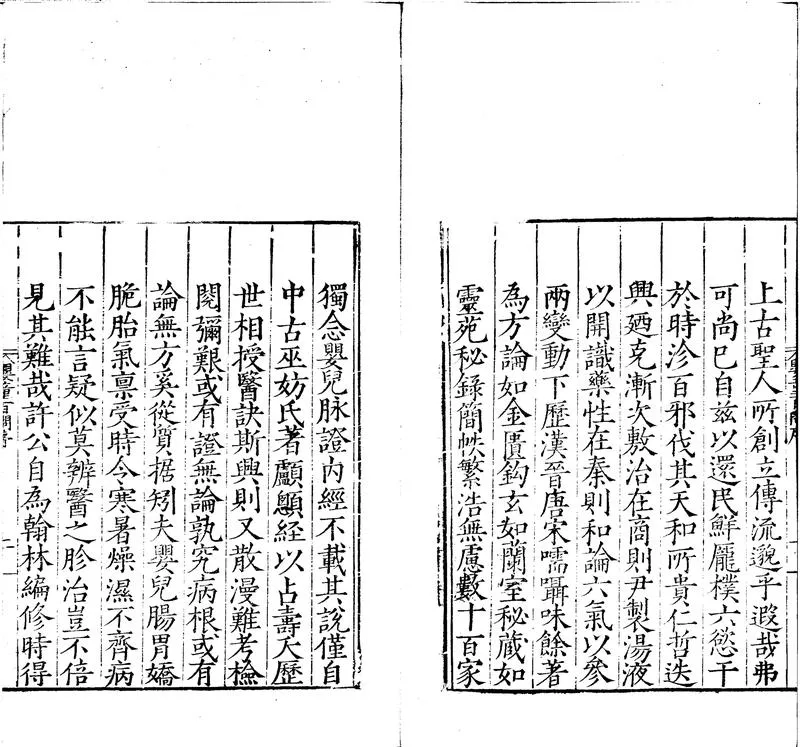 上古聖人所創立傳流邈乎遐哉弗
可尚已自兹以還民鮮龐樸六慾干
於時沴百邪伐其天和所貴仁哲迭
興廼克漸次敷治在商則尹製湯液
以開識藥性在秦則和論六氣以參
兩變動下歷漢晉唐宋嚅躡味餘著
為方論如金匱鈎玄如蘭室秘蔵如
靈苑秘錄簡帙繁浩無慮數十百家
獨念嬰兒脉證內經不載其說僅自
中古巫妨氏著顱顖経以占壽夭歷
世相授醫訣斯興則又散漫難考檢
閱彌艱或有證無論孰究病根或有
論無方奚從質据矧夫嬰兒腸胃嬌
脆胎氣禀受時令寒暑燥濕不齊病
不能言疑似莫辨醫之胗治豈不倍
見其難哉許公自為翰林編修時得